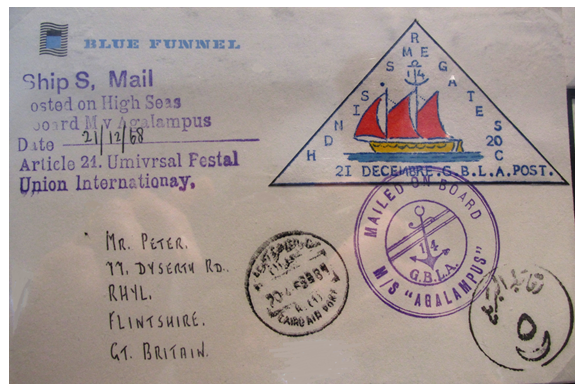 BLUE FUNNEL
Ship S, Mail
osted on High Seas
oard M.v Agalampus
Date 21/12/68
Article 21. Umivrsal Pestal
Union Internationay,
14
20
C
21 DECEMBRE.G.B.L.A.POST.
MAILED ON BOARD
14
G.B.L.A.
M/S "AGALAMPUS"
MR. PETER.
77. DYSERTH RD..
RHYL.
FLINTSHIRE.
GT. BRITAIN.
CAIRO AIR PORT
٥